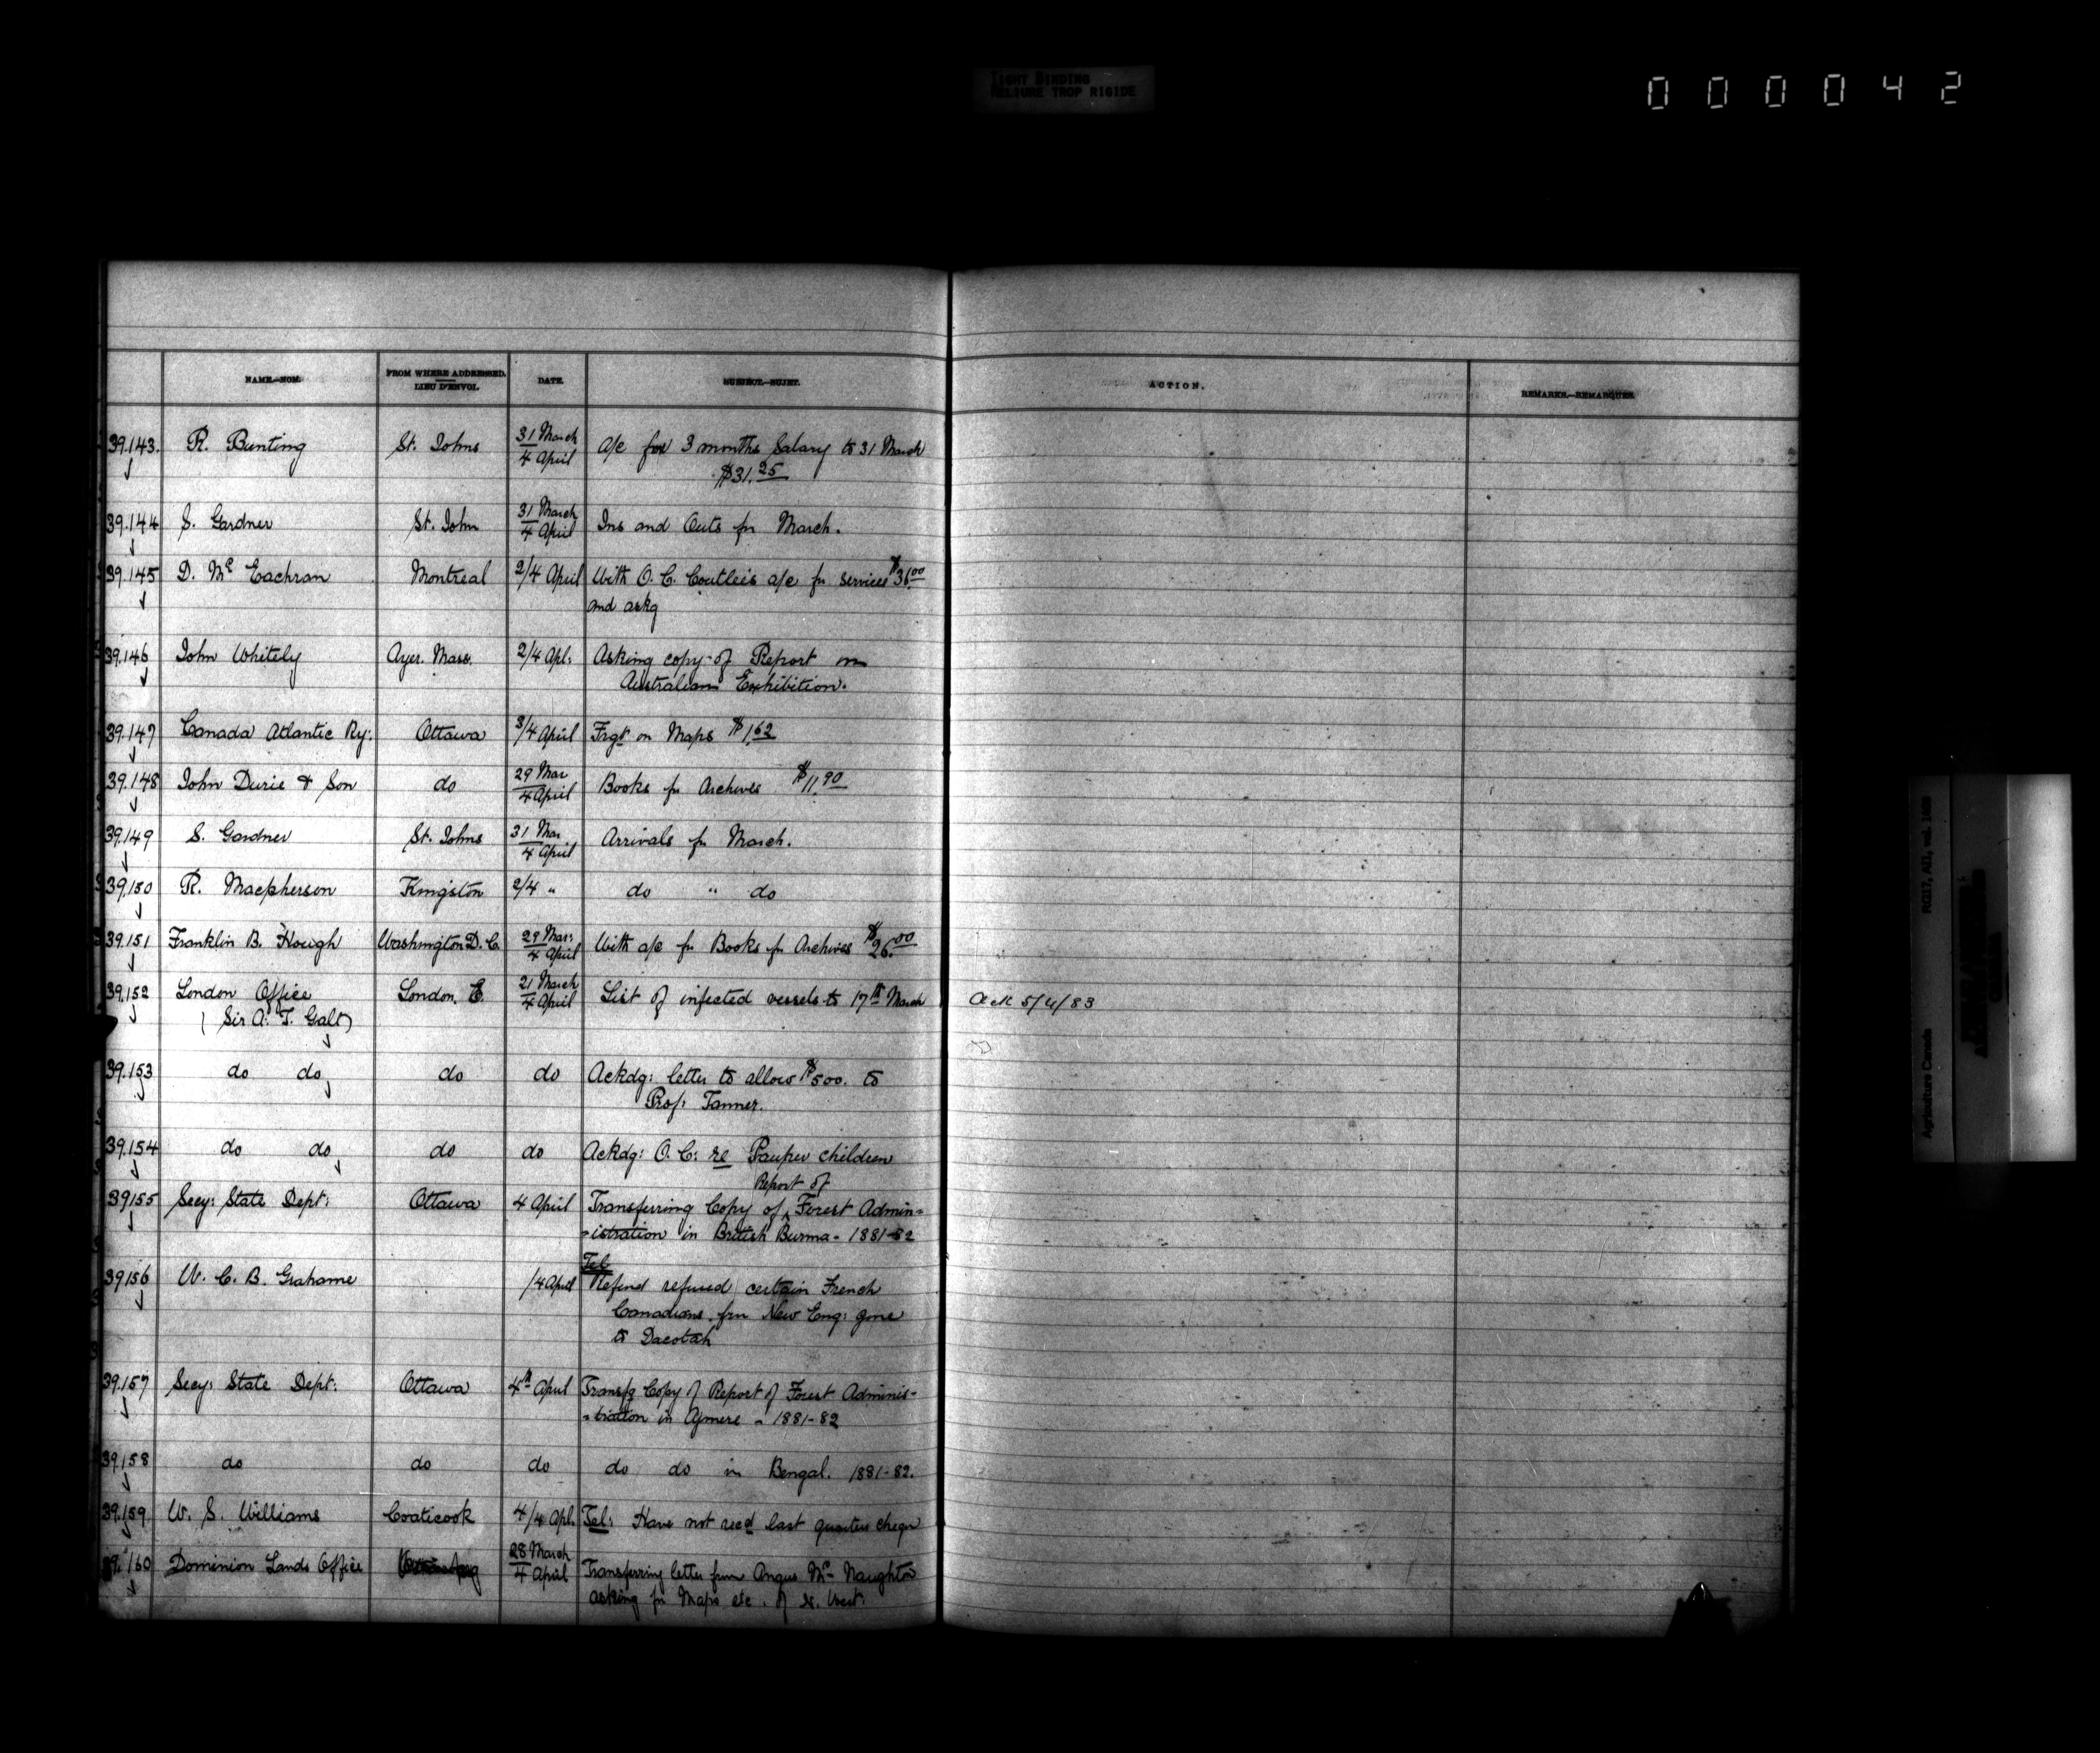 TIGHT BINDING
RELIURE TROP RIGIDE
000042
NAME.—NOM. FROM WHERE ADDRESSED. DATE. SUBJECT.—SUJET. ACTION. REMARKS.—REMARQUES.
LIEU D'ENVOI.
39.143. R. Bunting St. Johns 31 March a/c for 3 months Salary to 31 March
4 April $31.25
39.144 S. Gardner St. John 31 March Ins and Outs for March.
4 April
39.145 D. Mc Eachran Montreal 2/4 April With O. C. Coutleis a/c for services $36.00
and askg
39.146 John Whitely Ayer. Mass. 2/4 Apl: Asking copy of Report on
Australian Exhibition.
39.147 Canada Atlantic Ry: Ottawa 3/4 April Frgt on Maps $1.62
39.148 John Durie & Son do 29 Mar Books for Archives $11.90
4 April
39.149 S. Gardner St. Johns 31 Mar Arrivals for March.
4 April
39.150 R. Macpherson Kingston 2/4 " do " do
39.151 Franklin B. Hough Washington D. C. 29 Mar: With a/c for Books for Archives $26.00
4 April
39.152 London Office London. E. 21 March List of infected vessels to 17th March Ack 5/4/83
(Sir A. T. Galt) 4 April
39.153 do do do do Ackdg: letter to allow $500. to
Prof: Tanner.
39.154 do do do do Ackdg: O. C: re Pauper children
Report of
39155 Secy: State Dept: Ottawa 4 April Transferring Copy of Forest Admin=
=istration in British Burma - 1881-82
Tel
39156 W. C. B. Grahame /4 April Refund refused certain French
Canadians frm New Eng: gone
to Dacotah
39.157 Secy: State Dept: Ottawa 4th April Transfg Copy of Report of Forest Adminis-
=tration in Ajmere - 1881-82
39.158 do do do do do in Bengal. 1881-82.
39.159. W. S. Williams Coaticook 4/4 Apl. Tel: Have not recd last quarters cheqr
39.160 Dominion Lands Office 28 March Transferring letter from Angus Mc Naughton
4 April asking for Maps etc. of N. West.
Agriculture Canada RG17, AII, vol. 1660